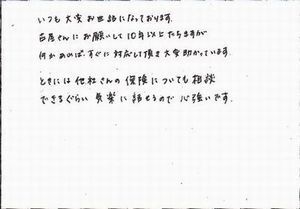 いつも大変お世話になっております。
古屋さんにお願いして10年以上たちますが
何かあれば、すぐに対応して頂き大変助かっています。
ときには他社さんの保険についても相談
できるぐらい気楽に話せるので心強いです。